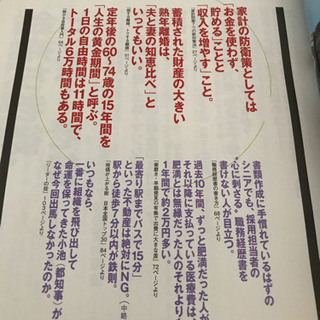 家計の防衛策としては
「お金を使わず、
貯める」ことと
「収入を増やす」こと。
蓄積された財産の大きい
熟年離婚は、
「夫と妻の知恵比べ」と
いっていい。
定年後の60〜74歳の15年間を
「人生の黄金期間」と呼ぶ。
1日の自由時間は11時間で、
トータル6万時間もある。
書類作成に手慣れているはずの
シニアでも、採用担当者の
〝心に刺さる〟職務経歴書を
書けない人が目立つ。
「職務経歴書の書き方」68ページより
過去10年間、ずっと肥満だった人が
それ以降に支払っている医療費は、
肥満とは無縁だった人のそれより
1年間で約20万円多い。
72ページより
「最寄り駅までバス15分」
といった不動産は絶対にNG。(中略)
駅から徒歩7分以内が鉄則。
日本全国トップ30」84ページより
いつもなら、
一番に組織を飛び出して
命運を保ってきた小池(都知事)が
なぜ今回出馬しなかったのか。
103ページより